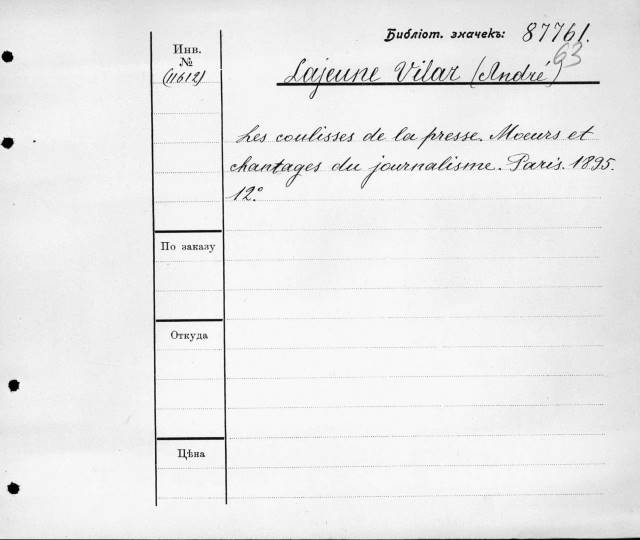 Библіот. значекъ: 87761.
63
Инв.
№
(11612)
Lajeune Vilar (André)
Les coulisses de la presse. Moeurs et
chantages du journalisme. Paris. 1895.
12º
По заказу
Откуда
Цѣна